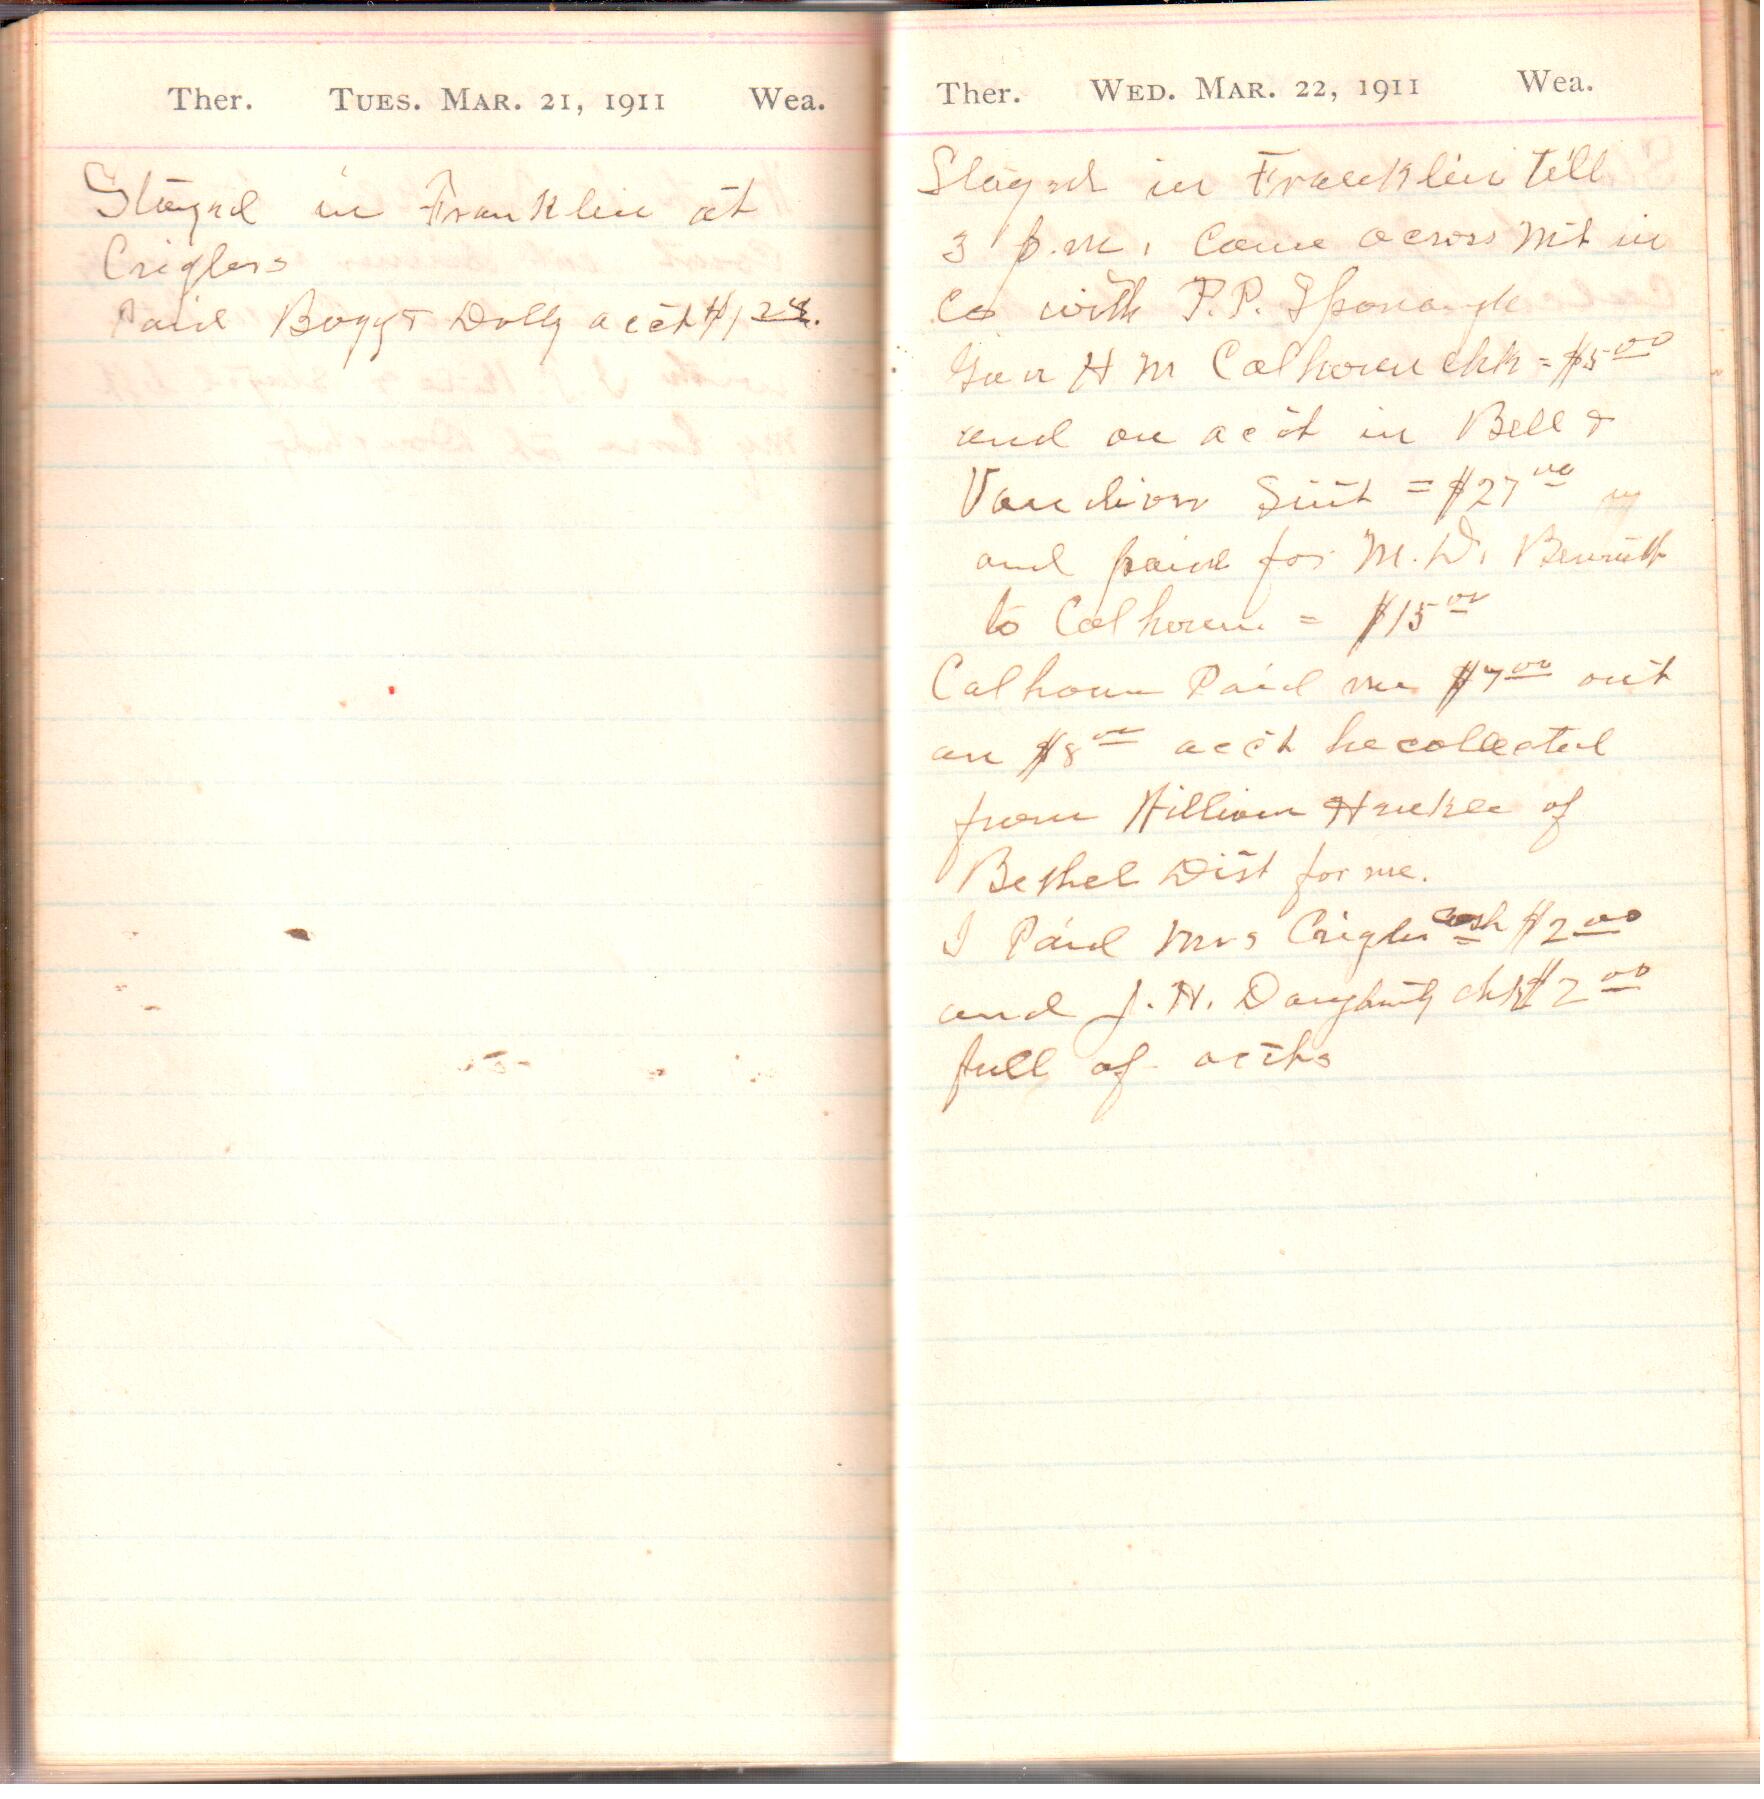 Ther. TUES. MAR. 21, 1911 Wea.
Stayed in Franklin at
Criglers
Paid Boggs & Dolly acct $1
Ther. WED. MAR. 22, 1911 Wea.
Stayed in Franklin till
3 p.m. Came across Mt in
Co with P.P. Sponaugle
Gave H M Calhoun chk = $5 00
and on acct in Bell &
Vandiver Suit = $27 00
and paid for M. D. Bennett
to Calhoun = $15 00
Calhoun Paid me $7 00 out
an $8 00 acct he collected
from of
Bethel Dist for me.
I Paid Mrs Crigler cash $2 00
and J. H. Daugherty chk $2 00
full of accts